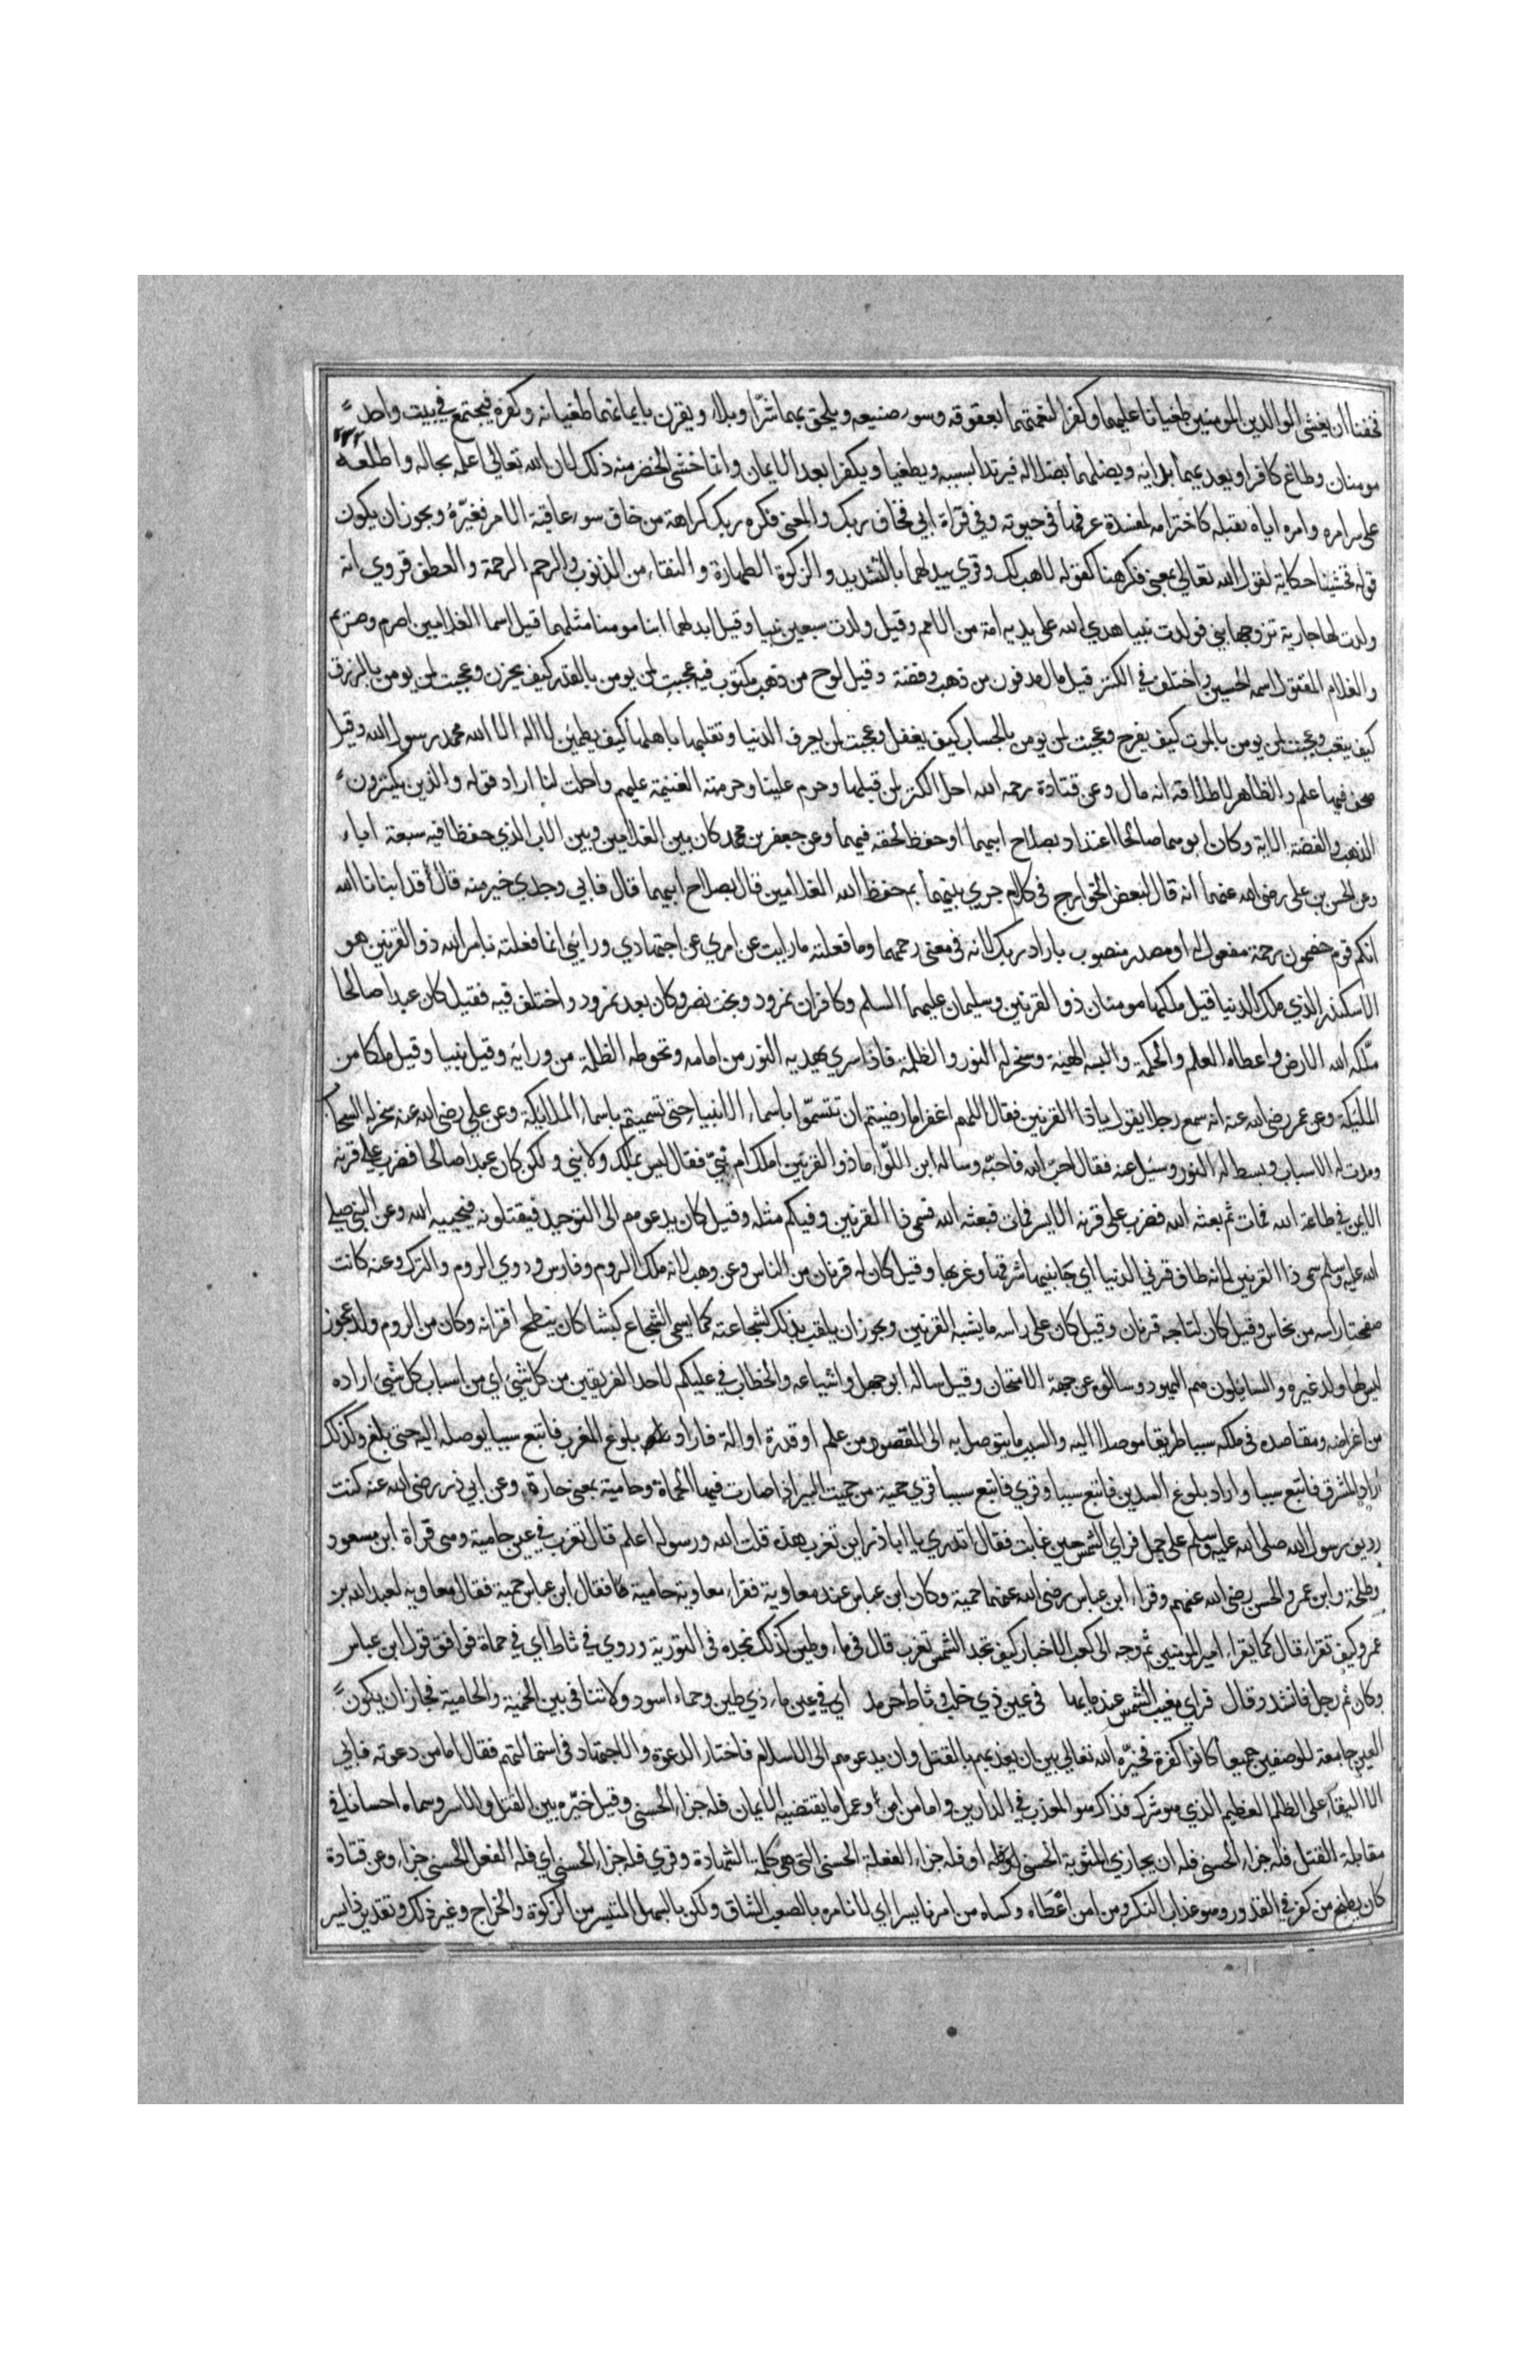 فخفنا ان يغشى الوالدين المومنين طغيانا عليهما وكفرا لنعمتهما بعقوقه وسوء صنيعه ويلحق بهما شرّا وبلاء ويقرن بايمانهما طغيانه وكفره فيجتمع في بيت واحد
مومنان وطاغ كافر او يعديهما بدايه ويضلهما بضلاله فيرتدا بسببه ويطغيا ويكفرا بعد الايمان وانما خشى الخضر منه ذلك لان الله تعالى اعلمه بحاله واطلعه ٢٣٢
على سر امره وامره اياه بقتله كاخترامه لمفسدة عرفها في حيوته وفي قراة ابي فخاف ربك والمعنى فكره ربك كراهة من خاف سوء عاقبة الامر فغيّره ويجوز ان يكون
قوله فخشينا حكاية لقول الله تعالى بمعنى فكرهنا كقوله لاهب لك وقري يبدلهما بالتشديد والزكوة الطهارة والنقاء من الذنوب والرحم الرحمة والعطف وروي انه
ولدت لها جارية تزوجها نبي فولدت نبيا هدي الله على يديه امة من الامم وقيل ولدت سبعين نبيا وقيل ابدلهما ابنا مومنا مثلهما قيل اسما الغلامين اصرم وصريم
والغلام المقتول اسمه الحسين واختلف في الكنز قيل مال مدفون من ذهب وفضة وقيل لوح من ذهب مكتوب فيه عجبت لمن يومن بالقدر كيف يحزن وعجبت لمن يومن بالرزق
كيف يتعب وعجبت لمن يومن بالموت كيف يفرح وعجبت لمن يومن بالحساب كيف يغفل وعجبت لمن يعرف الدنيا وتقلبها باهلها كيف يطمئن لا اله الا الله محمد رسول الله وقيل
صحف فيها علم والظاهر لاطلاقه انه مال وعن قتادة رحمه الله احل الكنز لمن قبلها وحرم علينا وحرمت الغنيمة عليهم واحلت لنا اراد قوله والذين يكنزون
الذهب والفضة الاية وكان ابوهما صالحا اعتداد بصلاح ابيهما او حفظ لحقه فيهما وعن جعفر بن محمد كان بين الغلامين وبين الاب الذي حفظا فيه سبعة اباء
وعن الحسن بن على رضى الله عنهما انه قال لبعض الخوارج في كلام جري بينهما بم حفظ الله الغلامين قال بصلاح ابيهما قال فابي وجدي خير منه قال قد انبانا الله
انكم قوم خصمون رحمة مفعول له او مصدر منصوب باراد ربك لانه في معنى رحمهما وما فعلته ما رايت عن امري عن اجتهادي ورايي انما فعلته بامر الله ذو القرنين هو
الاسكندر الذي ملك الدنيا قيل ملكها مومنان ذو القرنين وسليمان عليهما السلم وكافران نمرود وبخت نصر وكان بعد نمرود واختلف فيه فقيل كان عبدا صالحا
ملّكه الله الارض واعطاه العلم والحكمة والبسه الهيبة وسخر له النور والظلمة فاذا سري يهديه النور من امامه وتحوطه الظلمة من ورايه وقيل نبيا وقيل ملكا من
الملئكة وعن عمر رضى الله عنه انه سمع رجلا يقول ياذا القرنين فقال اللهم اغفر اما رضيتم ان تتسمّوا باسماء الانبياء حتى تسميتم باسماء الملايكة وعن علي رضى الله عنه سخر له السحاب
ومدت له الاسباب وبسط له النور وسئل عنه فقال احبّ الله فاحبّه وساله ابن الكوّا ما ذو القرنين املك ام نبيّ فقال ليس بملك ولا نبي ولكن كان عبدا صالحا فضرب على قرنه
الايمن في طاعة الله فمات ثم بعثه الله فضرب على قرنه الايسر فمات فبعثه الله فسمى ذا القرنين وفيكم مثله وقيل كان يدعوهم الى التوحيد فيقتلونه فيحييه الله وعن النبي صلى
الله عليه وسلم سمى ذا القرنين لانه طاف قرني الدنيا اي جانبيها شرقها وغربها وقيل كان له قرنان من الناس وعن وهب لانه ملك الروم وفارس وروي الروم والترك وعنه كانت
صفحتا راسه من نحاس وقيل كان لتاجه قرنان وقيل كان على راسه ما يشبه القرنين ويجوز ان يلقب بذلك لشجاعته كما يسمى الشجاع كبشا كانه ينطح اقرانه وكان من الروم ولد عجوز
ليس لها ولد غيره والسايلون هم اليهود وسالوه عن جهة الامتحان وقيل ساله ابو جهل واشياعه والخطاب في عليكم لاحد الفريقين من كل شئ اي من اسباب كل شئ اراده
من اغراضه ومقاصده في ملكه سببا طريقا موصلا اليه والسبب ما يتوصل به الى المقصود من علم او قدرة او الة فاراد بلوغ المغرب فاتبع سببا يوصله اليه حتى بلغ وكذلك
اراد المشرق فاتبع سببا واراد بلوغ السدين فاتبع سببا وقري فاتبع سببا قري حمية من حميت البير اذا صارت فيها الحماة وحامية بمعنى حارة وعن ابي ذر رضى الله عنه كنت
رديف رسول الله صلى الله عليه وسلم على جمل فراي الشمس حين غابت فقال اتدري يا ابا ذر اين تغرب هذه قلت الله ورسوله اعلم قال تغرب في عين حامية وهى قراة ابن مسعود
وطلحة وابن عمر والحسن رضى الله عنهم وقراء ابن عباس رضى الله عنهما حمية وكان ابن عباس عند معاوية فقراء معاوية حامية فقال ابن عباس حمية فقال معاويه لعبد الله بن
عمرو كيف تقراء قال كما يقراء امير المومنين ثم وجه الى كعب الاخبار كيف تجد الشمس تغرب قال في ماء وطين كذلك نجده في التورية وروي في ثاط اي في حماة فوافق قول ابن عباس
وكان ثم رجل فانشد وقال فراي مغيب الشمس عند مابها في عين ذي خلب وثاط حرمد اي في عين ماء ذي طين وحماء اسود ولا تنافي بين الحمية والحامية فجاز ان يكون
العين جامعة للوصفين جميعا كانوا كفرة فخيّره الله تعالى بين ان يعذبهم بالقتل وان يدعوهم الى الاسلام فاختار الدعوة والاجتهاد في استمالتهم فقال اما من دعوته فابي
الا البقاء على الظلم العظيم الذي هو شرك فذاك هو المعذب في الدارين واما من امن وعمل ما يقتضيه الايمان فله جزاء الحسنى وقيل خيّره بين القتل والاسر وسماه احسانا في
مقابلة القتل فله جزاء الحسنى فله ان يجازي المثوبة الحسنى او فله جزاء الفعلة الحسنى التى هى كلمة الشهادة وقري فله جزاء الحسنى اي فله الفعل الحسنى جزاء وعن قتادة
كان يطبخ من كفر في القدور وهو عذاب النكر ومن امن اعطاه وكساه من امرنا يسرا اي لا نامره بالصعب الشاق ولكن بالسهل المتيسر من الزكوة والخراج وغير ذلك وتقديره ذا يسر